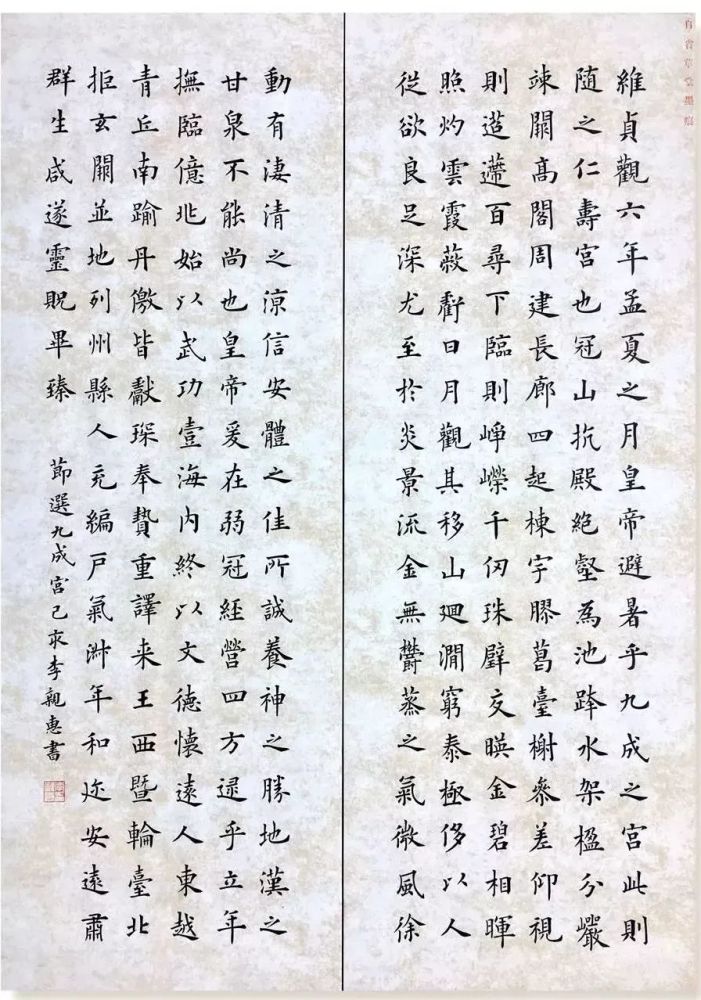 維貞觀六年孟夏之月皇帝避暑乎九成之宮此則
随之仁壽宮也冠山抗殿絕壑為池跨水架楹分巖
竦闕高閣周建長廊四起棟宇膠葛臺榭參差仰視
則迢遰百尋下臨則崢嶸千仞珠壁交暎金碧相暉
照灼雲霞蔽虧日月觀其移山迴澗窮泰極侈以人
従欲良足深尤至於炎景流金無鬱蒸之氣微風徐
動有淒清之涼信安體之佳所誠養神之勝地漢之
甘泉不能尚也皇帝爰在弱冠經營四方逮乎立年
撫臨億兆始以武功壹海內終以文德懷遠人東越
青丘南踰丹儌皆獻琛奉贄重譯来王西暨輪臺北
拒玄闕並地列州縣人充編戶氣淑年和迩安遠肅
群生咸遂靈貺畢臻
節選九成宮己亥李親惠書
草堂墨痕